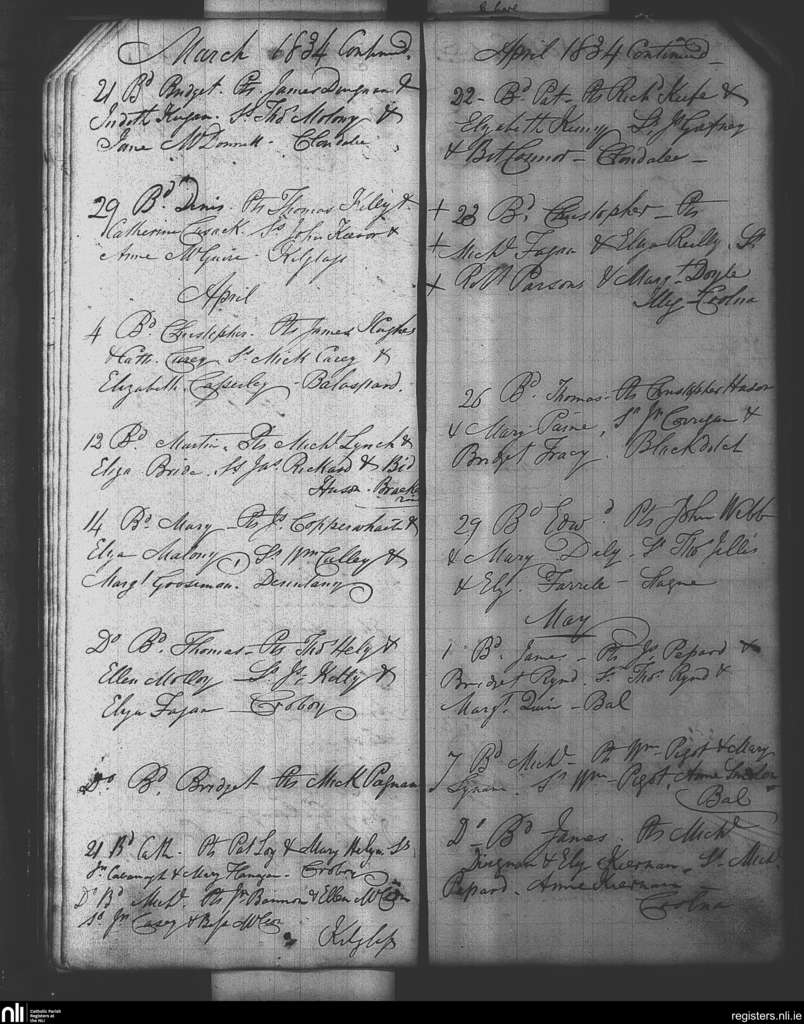 March 1834 Continued.
21 Bd Bridget. Pts James Dungnan &
Judith Hogan. Ss Thos Molony &
Jane McDonnell - Clondalee
29 Bd Denis. Pts Thomas Kelly &
Catherine Cusack. Ss John &
Anne McGuire - Kilglass
April
4 Bd Christopher. Pts James Hughes
& Cath. Casey Ss Mick Casey &
Elizabeth Casserley - Balaspard.
12 Bd Martin. Pts Michl Lynch &
Eliza Bride. Ss Jas Rickard & Bid
Huson. Brack
14 Bd Mary - Pts Js. Copperwhaite &
Elya Malony, Ss Wm Culley &
Margt Goosemon.
Do Bd. Thomas - Pts Thos Hely &
Ellen Molloy - Ss Js. Kelly &
Elya Fagan - Croboy
Do Bd. Bridget Pts Mick Pagnan
21 Bd Cath. Pts Pat Loy & Mary Helyn Ss
Jn Cavanagh & Mary Flanagan - Croboy
Do Bd Michl. Pts Jn Bannon & Ellen
Ss Jn Casey & Bess
Kilglass
April 1834 Continued -
22 - Bd Pat - Pts Richd Keefe &
Elyzabeth Ss, Js Gafney
& Bet Connor - Clondalee -
+ 23 Bd Christopher - Pts
+ Michl Fagan & Elya Reilly, Ss
+ Robt Parsons & Margt Doyle
Croolna
26 Bd. Thomas - Pts Christopher Huson
& Mary Paine, Ss Jn Corrigan &
Bridget Tracy. Blackditch
29 Bd Edwd Pts John Webb
& Mary Daly. Ss Thos
& Ely. Farrell - Hague
May
1 Bd. James - Pts Js Pepard &
Bridget Rynd. Ss Thos Rynd &
Margt. Quin - Bal
7 Bd Michl - Pts Wm - Pigot & Mary
Lynam. Ss Wm - Pigot, Anne
Bal
Do - Bd James. Pts Michl
Dungnan & Ely Kiernan. Ss Michl
Pepard. Anne Kiernan
Croolna
nli
Catholic Parish
Registers at
the NLI
registers.nli.ie